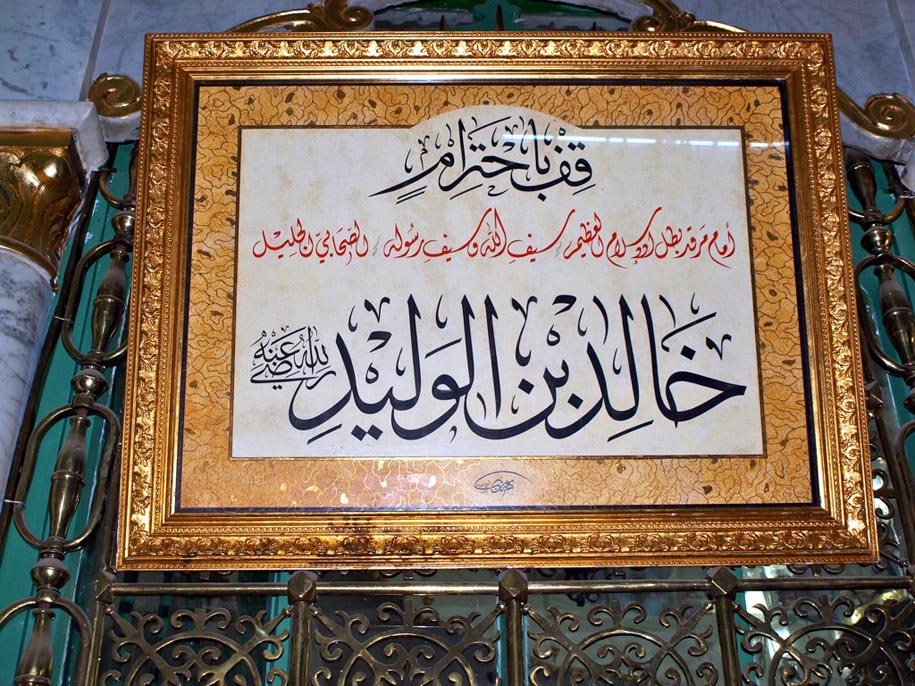 قِفْ بِاحْتِرَامٍ
أمام مرقد بطل الإسلام العظيم سيف الله وسيف رسوله الصحابي الجليل
خَالِدِ بْنِ الْوَلِيْدِ رضي الله عنه